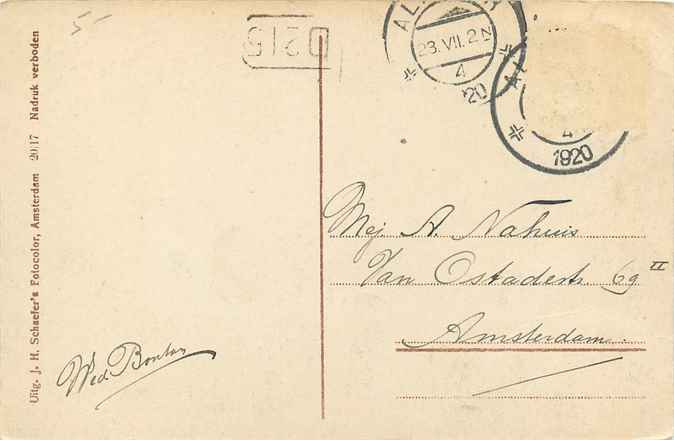 5-
D215
AL
23.VII.2N
4
'20
AL
4
1920
Uitg. J. H. Schaefer's Fotocolor, Amsterdam 20|17 Nadruk verboden
Mej. A. Nahuis
Van Ostadestr. 69 II
Amsterdam.
Wed.